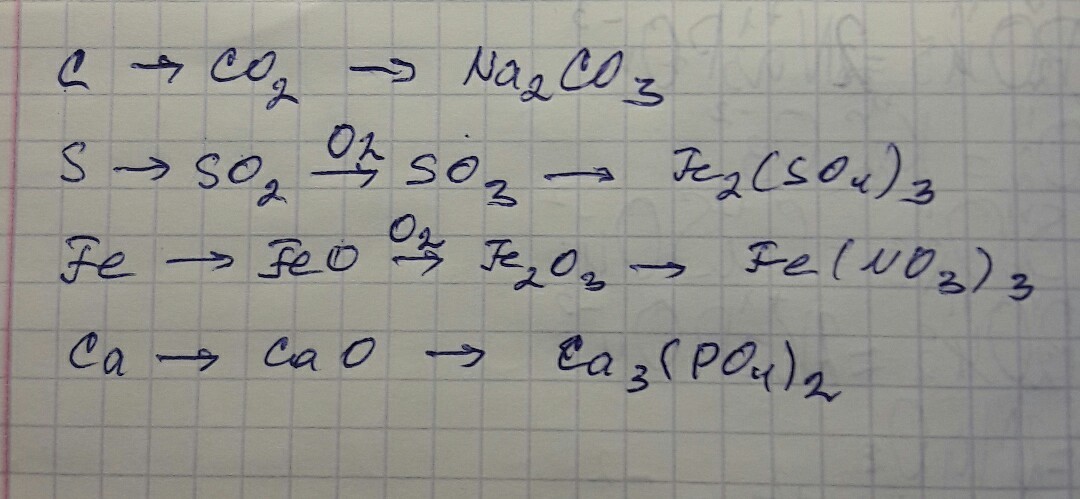 C → CO₂ → Na₂CO₃
S → SO₂ →(O₂) SO₃ → Fe₂(SO₄)₃
Fe → FeO →(O₂) Fe₂O₃ → Fe(NO₃)₃
Ca → CaO → Ca₃(PO₄)₂